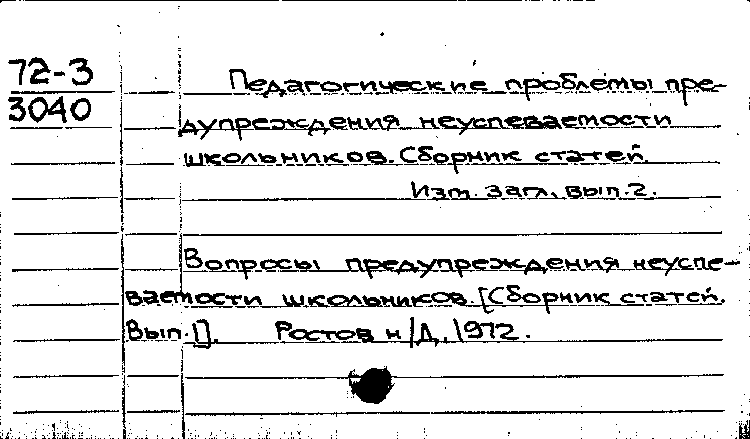 72-3
3040
Педагогические проблемы пре-
дупреждения неуспеваемости
школьников. Сборник статей.
Изм. загл., вып. 2.
Вопросы предупреждения неуспе-
ваемости школьников. [Сборник статей.
Вып. 1]. Ростов н/Д, 1972.